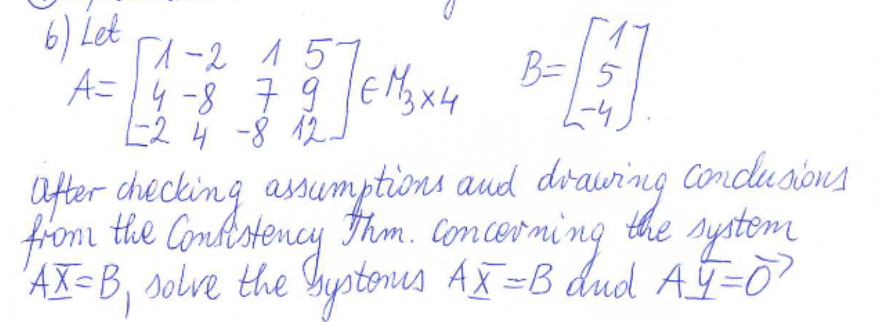 b) Let
A = [1 -2 1 5
4 -8 7 9
-2 4 -8 12] ∈ M₃ₓ₄ B = [1
5
-4].
After checking assumptions and drawing conclusions
from the Consistency Thm. concerning the system
AX=B, solve the systems AX=B and AY=0⃗